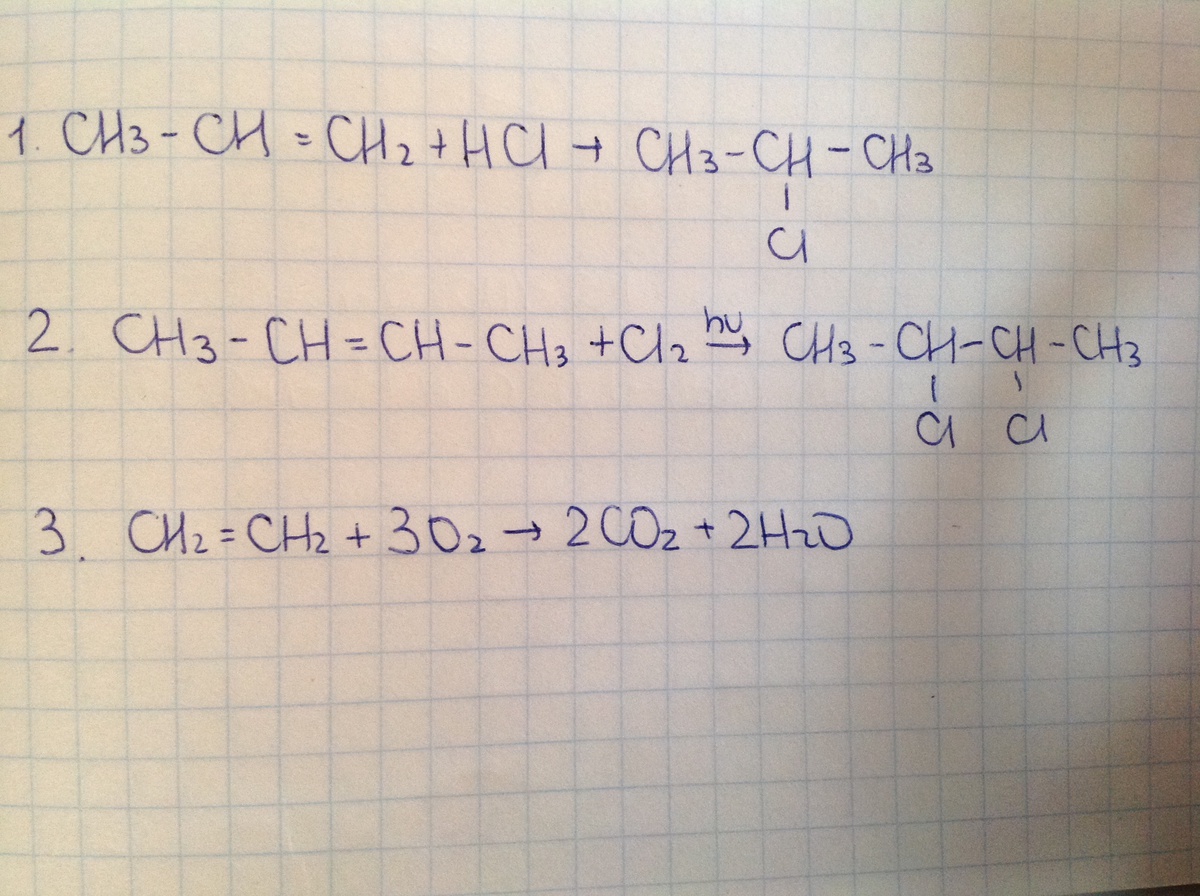 1. CH3 - CH = CH2 + HCl → CH3 - CH - CH3
Cl
2. CH3 - CH = CH - CH3 + Cl2 hν→ CH3 - CH - CH - CH3
Cl Cl
3. CH2 = CH2 + 3O2 → 2CO2 + 2H2O